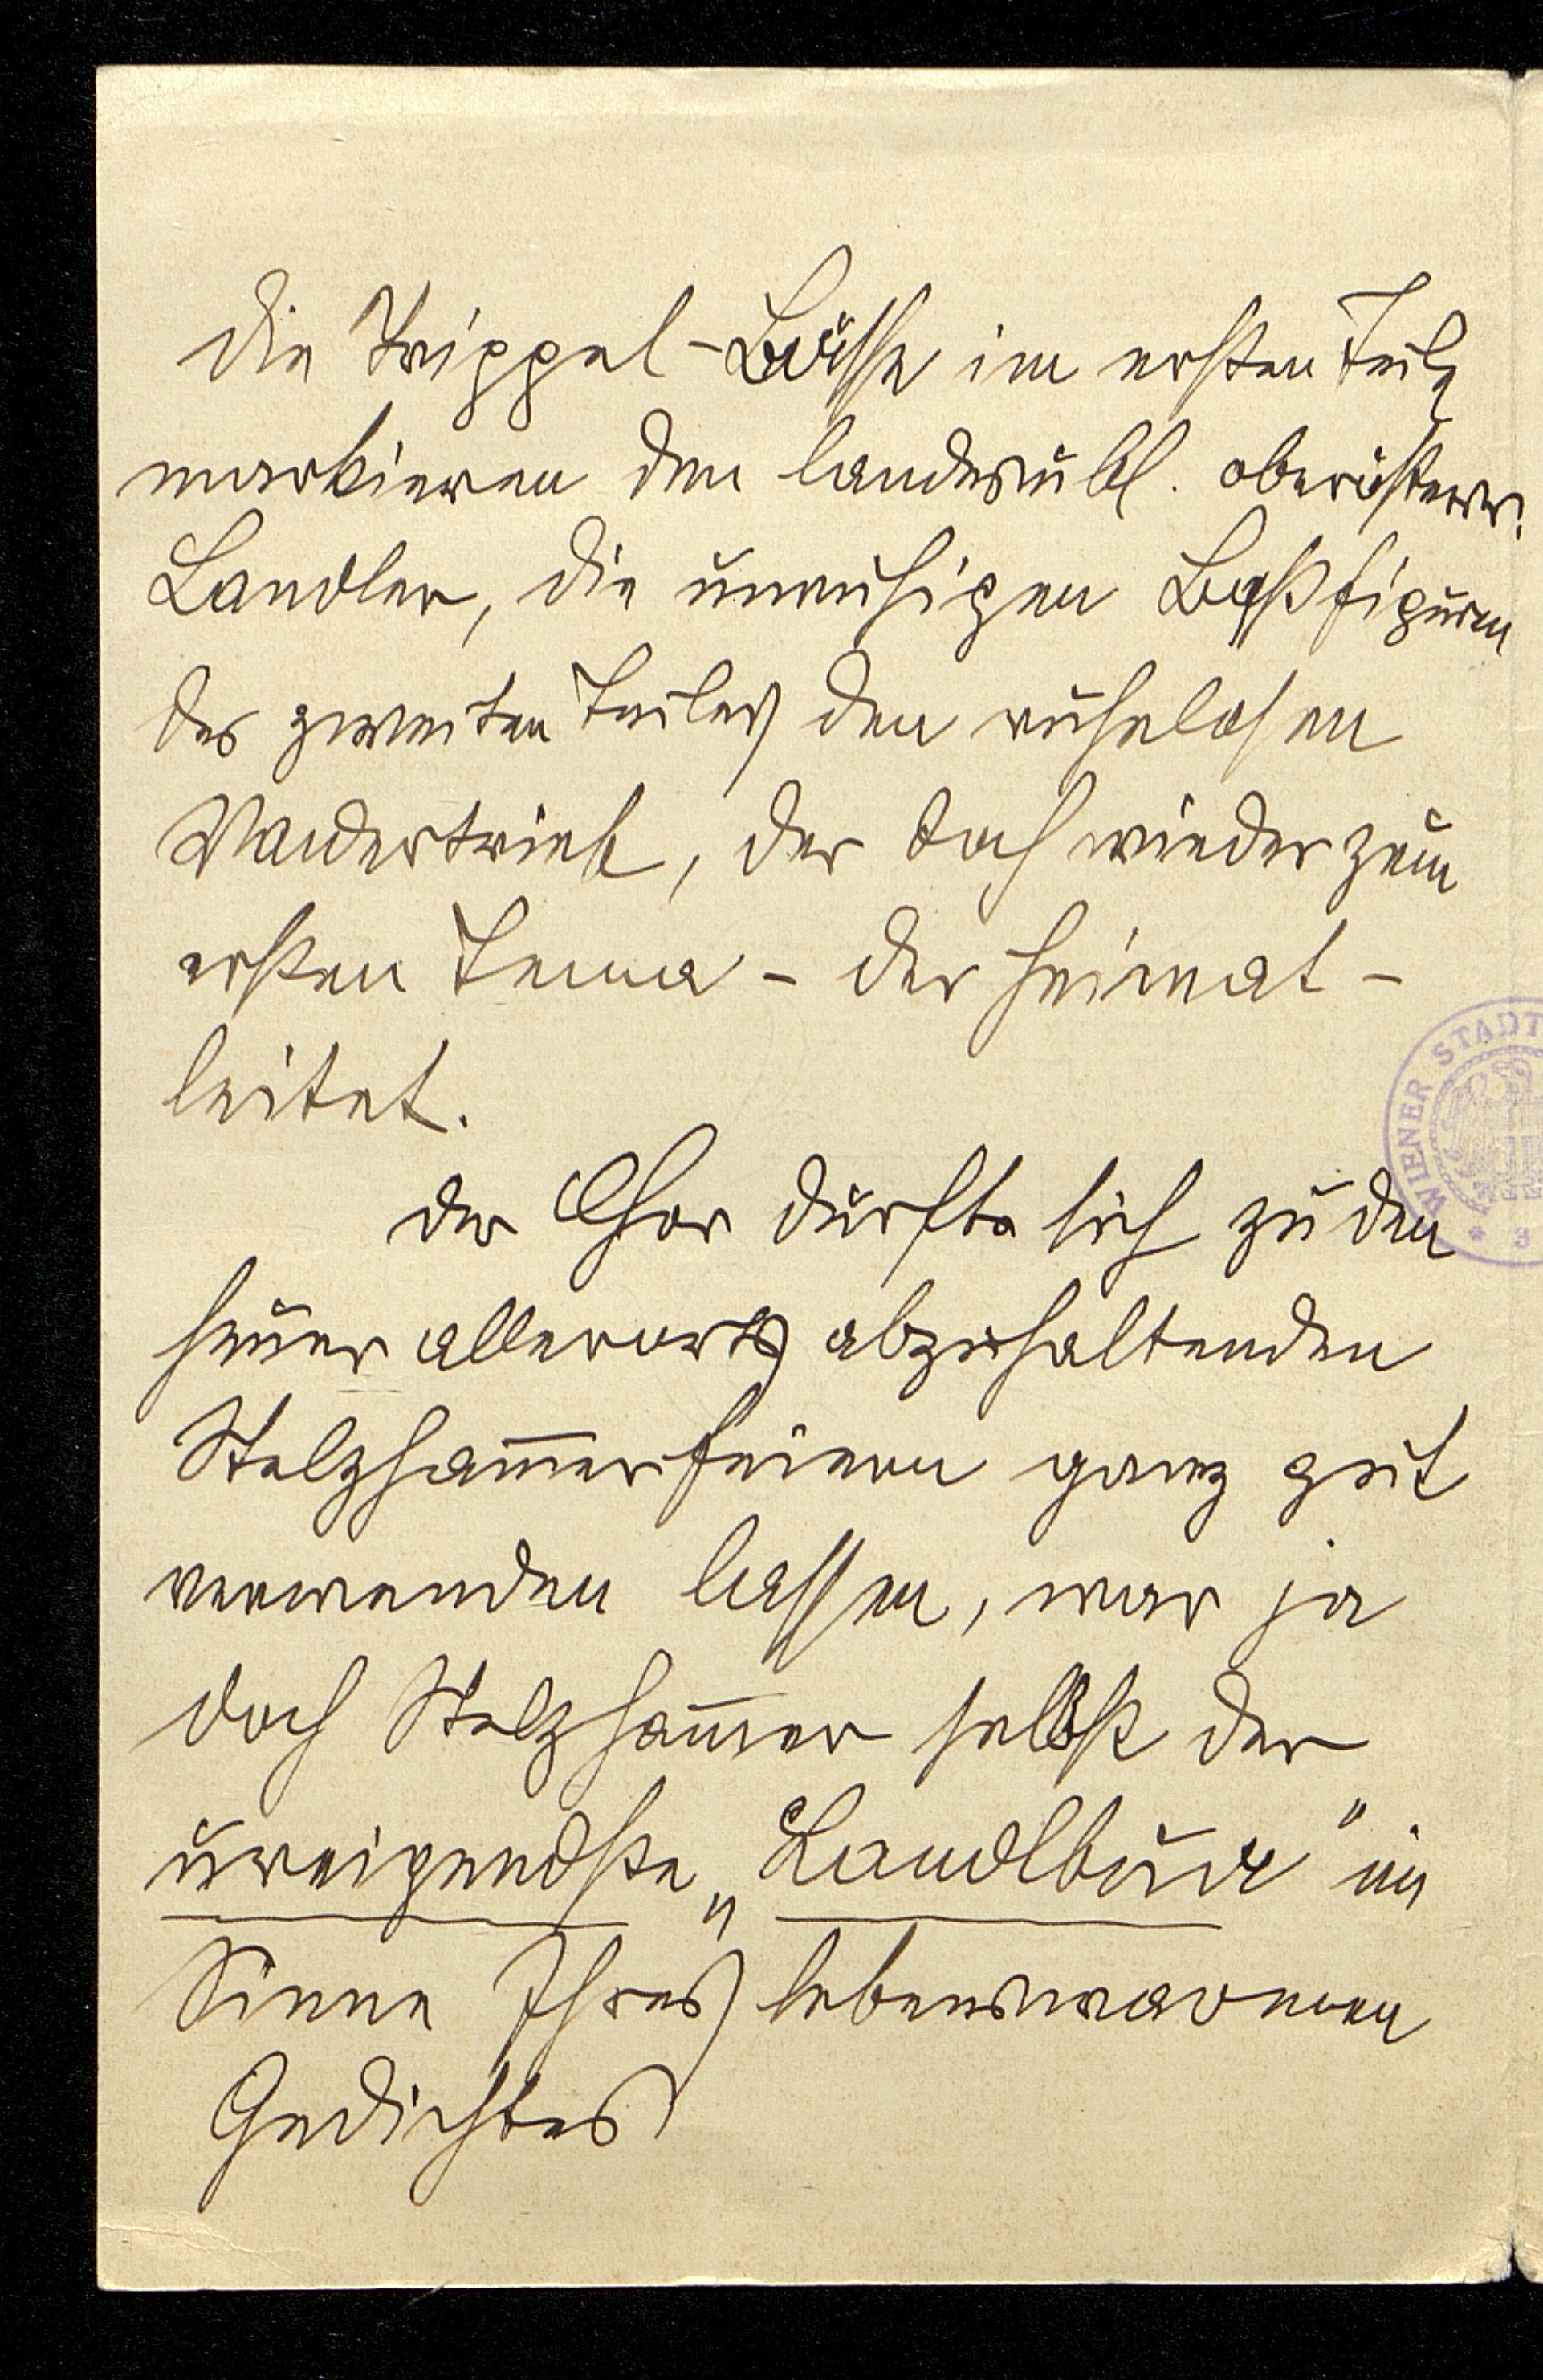 Die Trippel-Bässe im ersten Teile
markieren den landesübl. oberösterr.
Landler, die unruhigen Baßfiguren
des zweiten Teiles den ruhelosen
Wandertrieb, der doch wieder zum
ersten Tema - der Heimat -
leitet.
Der Chor dürfte sich zu den
heuer allerorts abzuhaltenden
Stelzham̄erfeiern ganz gut
verwenden lassen, war ja
doch Stelzham̄er selbst der
ureigendste „Landlbua" im
Sinne Ihres lebenswarmen
Gedichtes
WIENER STADT